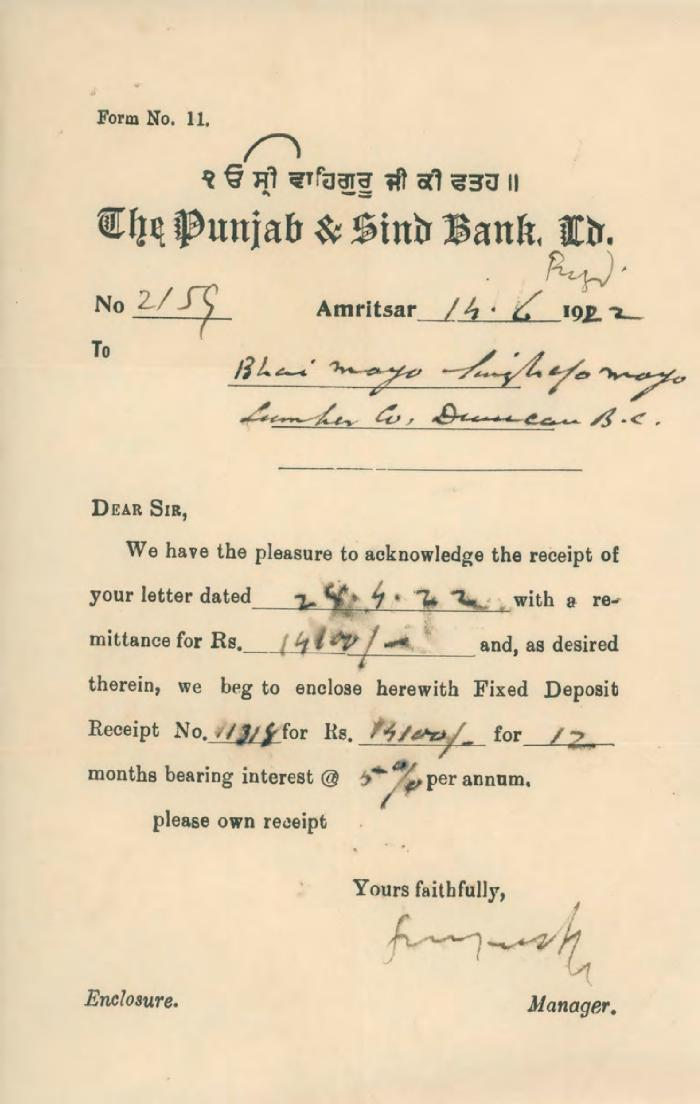 Form No. 11.
੧ਓ ਸ੍ਰੀ ਵਾਹਿਗੁਰੂ ਜੀ ਕੀ ਫਤਹ ॥
The Punjab & Sind Bank, Ld.
Regd.
No 2159 Amritsar 14.6 1922
To
Bhai mayo Singh c/o mayo
Lumber Co, Duncan B.C.
DEAR SIR,
We have the pleasure to acknowledge the receipt of
your letter dated 24.4.22 with a re-
mittance for Rs. 14100/- and, as desired
therein, we beg to enclose herewith Fixed Deposit
Receipt No. 11318 for Rs. 14100/- for 12
months bearing interest @ 5% per annum.
please own receipt
Yours faithfully,
Enclosure. Manager.